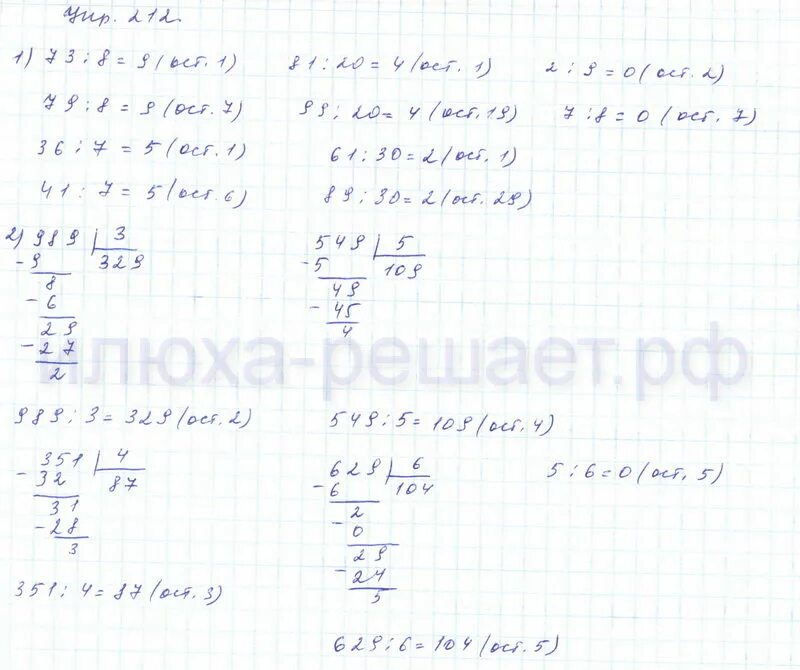 Упр. 212.
1) 73 : 8 = 9 (ост. 1) 81 : 20 = 4 (ост. 1) 2 : 9 = 0 (ост. 2)
79 : 8 = 9 (ост. 7) 99 : 20 = 4 (ост. 19) 7 : 8 = 0 (ост. 7)
36 : 7 = 5 (ост. 1) 61 : 30 = 2 (ост. 1)
41 : 7 = 5 (ост. 6) 89 : 30 = 2 (ост. 29)
2) 989 | 3
- 9 329
8
- 6
29
- 27
2
989 : 3 = 329 (ост. 2)
549 | 5
- 5 109
49
- 45
4
549 : 5 = 109 (ост. 4)
илюха-решает.рф
351 | 4
- 32 87
31
- 28
3
351 : 4 = 87 (ост. 3)
629 | 6
- 6 104
2
- 0
29
- 24
5
629 : 6 = 104 (ост. 5)
5 : 6 = 0 (ост. 5)